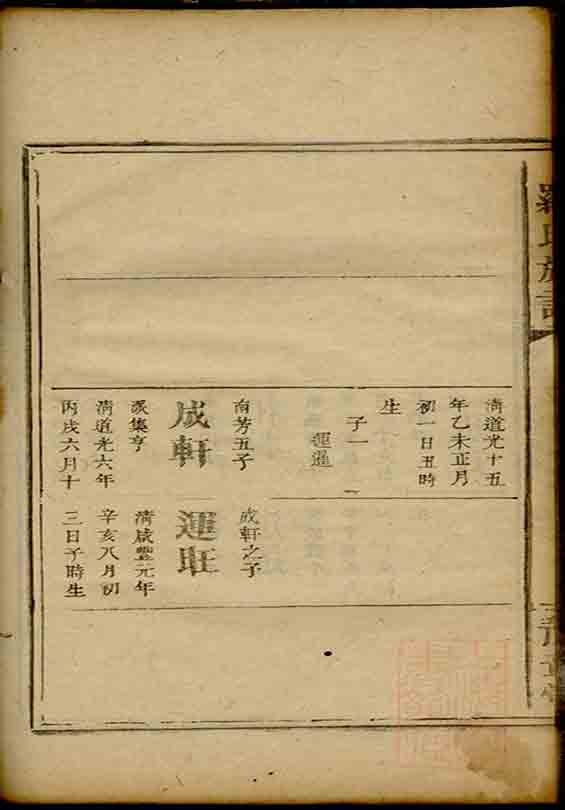 羅氏族譜
清道光十五
年乙未正月
初一日丑時
生
子一
運通
自芳五子
成軒
字集亨
清道光六年
丙戌六月十
成軒之子
運旺
清咸豐元年
辛亥八月初
三日子時生
豫章堂